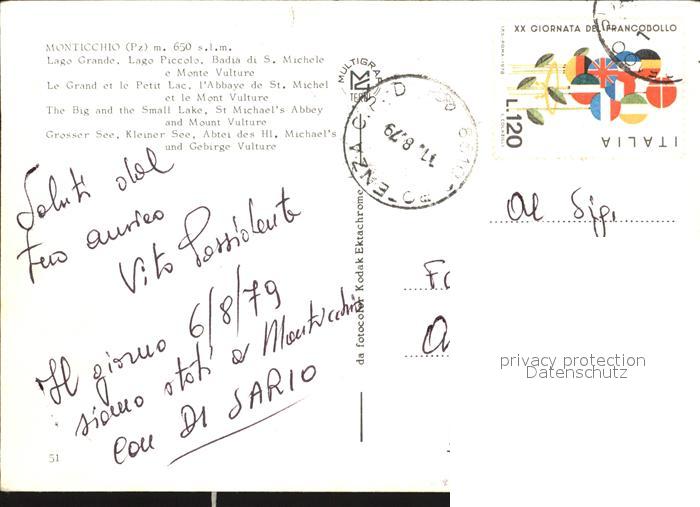 MONTICCHIO (Pz) m. 650 s.l.m.
Lago Grande, Lago Piccolo, Badia di S. Michele
e Monte Vulture
Le Grand et le Petit Lac, l'Abbaye de St. Michel
et le Mont Vulture
The Big and the Small Lake, St Michael's Abbey
and Mount Vulture
Grosser See, Kleiner See, Abtei des Hl. Michael's
und Gebirge Vulture
Saluti dal
tuo amico
Vito Possidente
Il giorno 6/8/79
siamo stati a Monticchio
con DI SARIO
51
MULTIGRAF
TERNI
da fotocolor Kodak Ektachrome
POTENZA C.P. D
11.8.79
XX GIORNATA DEL FRANCOBOLLO
L.120
ITALIA
Al Sig.
privacy protection
Datenschutz